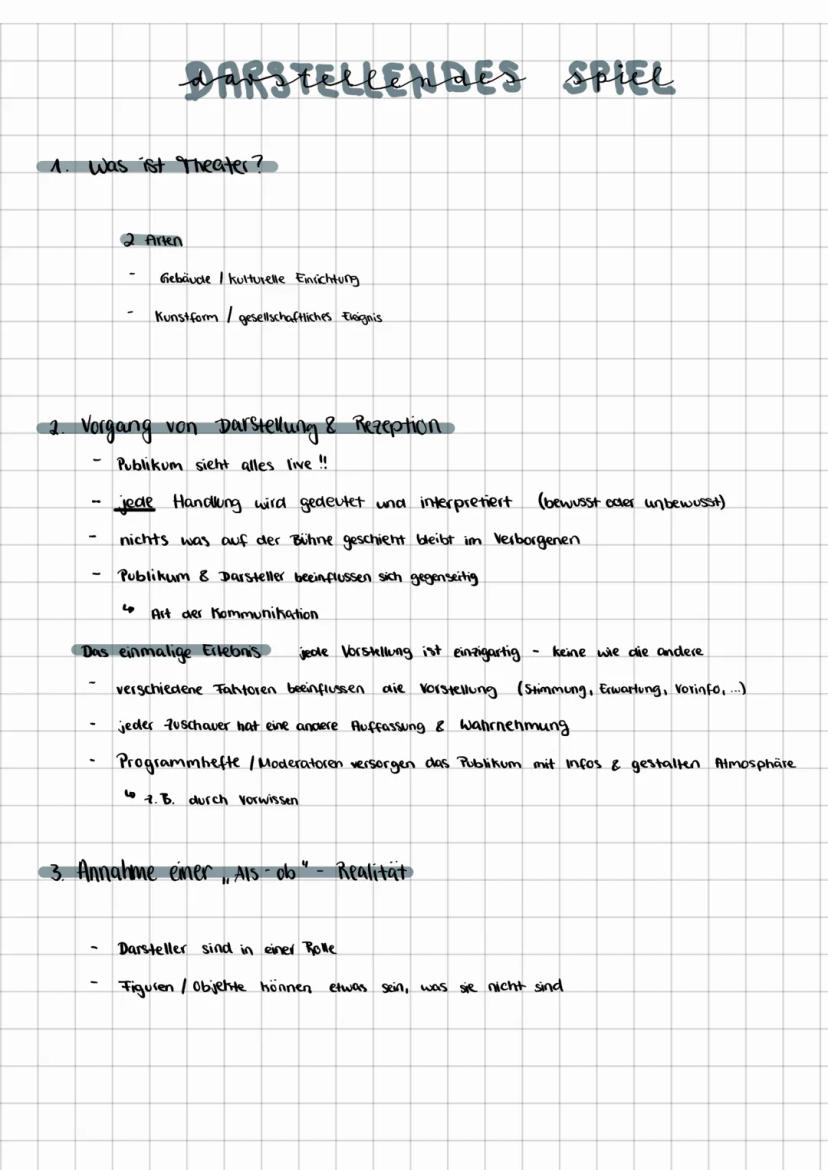 DARSTELLENDES SPIEL
1. Was ist Theater?
2 Arten
- Gebäude / kulturelle Einrichtung
- Kunstform / gesellschaftliches Ereignis
2. Vorgang von Darstellung & Rezeption
- Publikum sieht alles live !!
- jede Handlung wird gedeutet und interpretiert (bewusst oder unbewusst)
- nichts was auf der Bühne geschieht bleibt im Verborgenen
- Publikum & Darsteller beeinflussen sich gegenseitig
↳ Art der Kommunikation
Das einmalige Erlebnis jede Vorstellung ist einzigartig - keine wie die andere
- verschiedene Faktoren beeinflussen die Vorstellung (Stimmung, Erwartung, Vorinfo, ...)
- jeder Zuschauer hat eine andere Auffassung & Wahrnehmung
- Programmhefte / Moderatoren versorgen das Publikum mit Infos & gestalten Atmosphäre
↳ z.B. durch Vorwissen
3. Annahme einer „Als-ob"-Realität
- Darsteller sind in einer Rolle
- Figuren / Objekte können etwas sein, was sie nicht sind